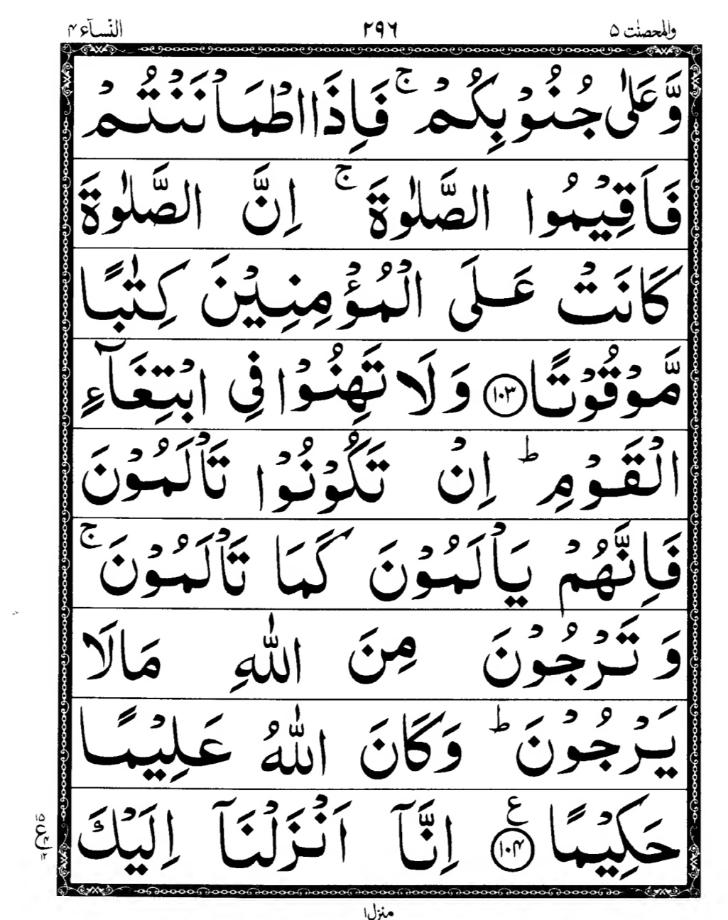 والمحصنٰت ۵ ۲۹۶ النسآء ۴
وَّعَلٰى جُنُوْبِكُمْ ۚ فَاِذَا اطْمَاْنَنْتُمْ
فَاَقِيْمُوا الصَّلٰوةَ ۚ اِنَّ الصَّلٰوةَ
كَانَتْ عَلَى الْمُؤْمِنِيْنَ كِتٰبًا
مَّوْقُوْتًا ۱۰۳ وَلَا تَهِنُوْا فِى ابْتِغَآءِ
الْقَوْمِ ؕ اِنْ تَكُوْنُوْا تَاْلَمُوْنَ
فَاِنَّهُمْ يَاْلَمُوْنَ كَمَا تَاْلَمُوْنَ ۚ
وَتَرْجُوْنَ مِنَ اللّٰهِ مَالَا
يَرْجُوْنَ ؕ وَكَانَ اللّٰهُ عَلِيْمًا
حَكِيْمًا ۱۰۴ ع اِنَّآ اَنْزَلْنَآ اِلَيْكَ
منزل۱